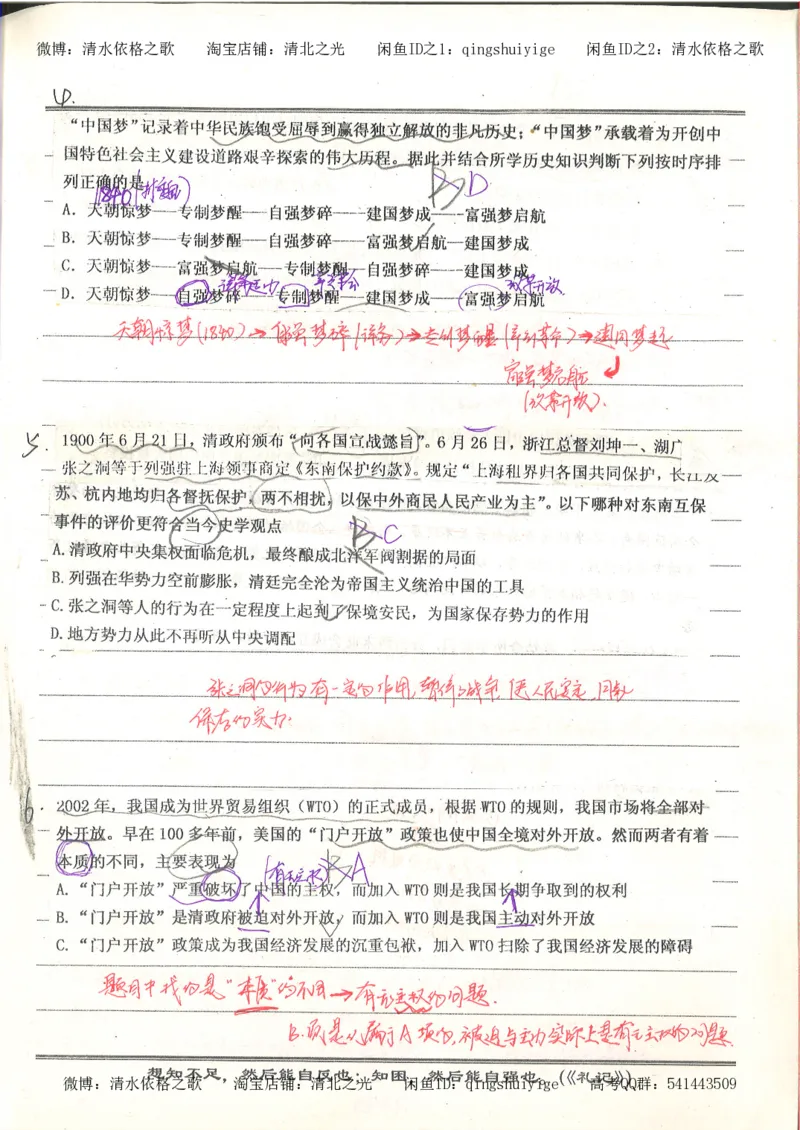 微博：清水依格之歌 淘宝店铺：清北之光 闲鱼ID之1：qingshuiyige 闲鱼ID之2：清水依格之歌
4.
“中国梦”记录着中华民族饱受屈辱到赢得独立解放的非凡历史；“中国梦”承载着为开创中
国特色社会主义建设道路艰辛探索的伟大历程。据此并结合所学历史知识判断下列按时序排
列正确的是
B D
1840
A. 天朝惊梦——专制梦醒——自强梦碎——建国梦成——富强梦启航
B. 天朝惊梦——专制梦醒——自强梦碎——富强梦启航—建国梦成
C. 天朝惊梦——富强梦启航——专制梦醒——自强梦碎——建国梦成
洋务运动 辛亥革命 改革开放
D. 天朝惊梦——自强梦碎——专制梦醒——建国梦成——富强梦启航
天朝惊梦(1840)→自强梦碎(洋务)→专制梦醒(辛亥革命)→建国梦起
富强梦启航
(改革开放).
5.
1900年6月21日，清政府颁布“向各国宣战懿旨”。6月26日，浙江总督刘坤一、湖广
张之洞等于列强驻上海领事商定《东南保护约款》。规定“上海租界归各国共同保护，长江及
苏、杭内地均归各督抚保护，两不相扰，以保中外商民人民产业为主”。以下哪种对东南互保
事件的评价更符合当今史学观点
B C
A.清政府中央集权面临危机，最终酿成北洋军阀割据的局面
B.列强在华势力空前膨胀，清廷完全沦为帝国主义统治中国的工具
C.张之洞等人的行为在一定程度上起到了保境安民，为国家保存势力的作用
D.地方势力从此不再听从中央调配
张之洞的行为有一定的作用，
保存的实力.
6.
2002年，我国成为世界贸易组织（WTO）的正式成员，根据WTO的规则，我国市场将全部对
外开放。早在100多年前，美国的“门户开放”政策也使中国全境对外开放。然而两者有着
本质的不同，主要表现为
(有无主权) A
A.“门户开放”严重破坏了中国的主权，而加入WTO则是我国长期争取到的权利
B.“门户开放”是清政府被迫对外开放，而加入WTO则是我国主动对外开放
C.“门户开放”政策成为我国经济发展的沉重包袱，加入WTO扫除了我国经济发展的障碍
题目中找的是“本质”的不同→有无主权的问题.
B.项是从属于A项的，被迫与主动实际上是有无主权的问题.
想知不足，然后能自反也；知困，然后能自强也。(《礼记》)
微博：清水依格之歌 淘宝店铺：清北之光 闲鱼ID：qingshuiyige 高考QQ群：541443509